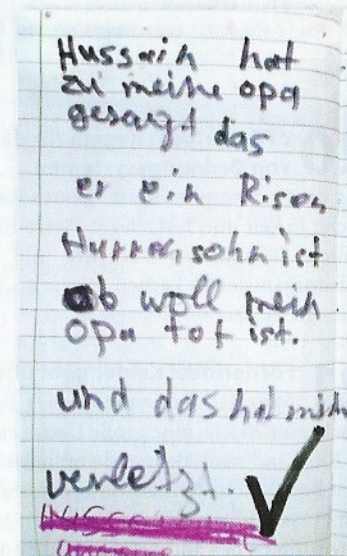 Hussain hat
zu meine opa
gesagt das
er ein Risen
Hurrensohn ist
ob woll mein
opa tot ist.
und das hat mich
verletzt.